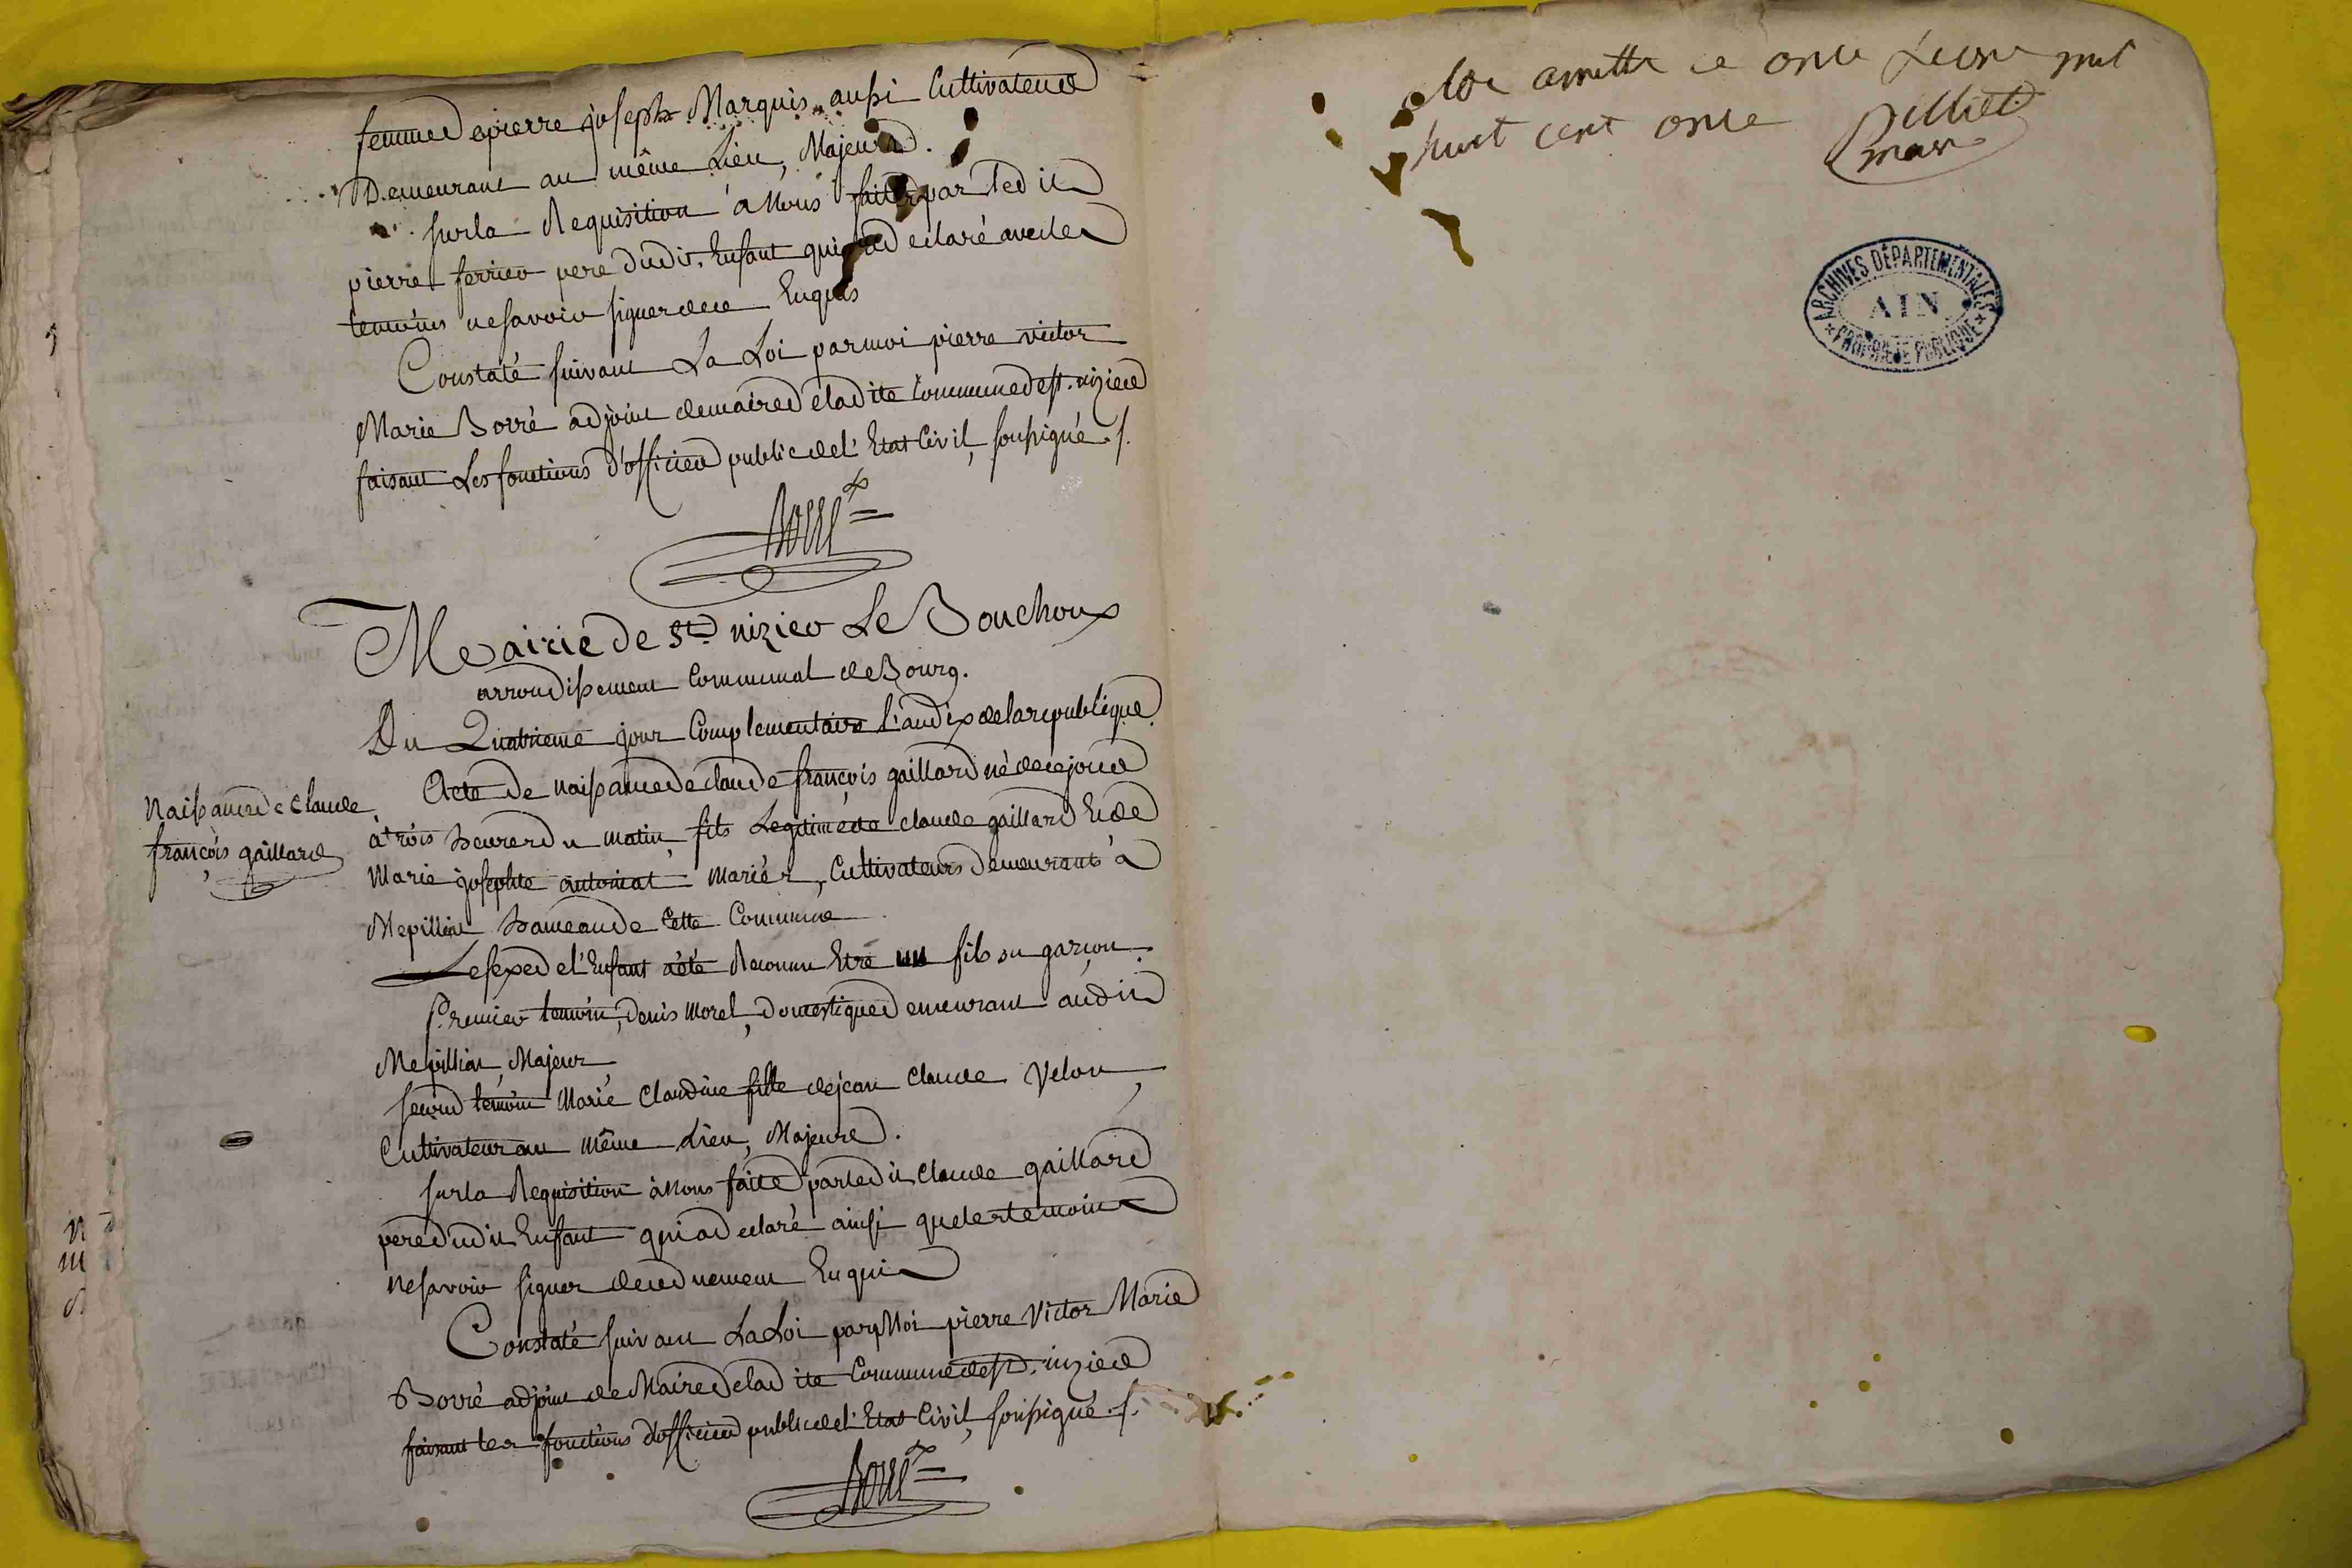 femme de pierre joseph Marquis, aussi Cultivateur
Demeurant au même Lieu, Majeure.
sur la Requisition à Nous faite par Ledit
pierre ferrier pere dudit Enfant qui a declaré avec les
temoins ne savoir signer de ce Enquis
Constaté suivant La Loi par moi pierre victor
Marie Borré adjoint de maire de ladite Commune de st. nizier
faisant Les fonctions d'officier public de l'Etat Civil, soussigné ./.
Borré
Mairie de St nizier Le Bouchoux
arrondissement Communal de Bourg.
Du Quatrieme jour Complementaire l'an dix de la republique.
Naissance de Claude
françois gaillard
Acte de naissance de claude françois gaillard né de ce jour
à trois heures du matin, fils Legitime de claude gaillard Et de
Marie josephte antoinat mariés, Cultivateurs demeurants à
Mepilliat hameau de Cette Commune
Le sexe de l'Enfant a été Reconnu Etre un fils ou garçon.
Premier temoin, denis Morel, domestique demeurant audit
Mepilliat, Majeur
second temoin Marie Claudine fille de jean Claude Velon,
Cultivateur au même Lieu, Majeure.
sur la Requisition à Nous faite par ledit Claude gaillard
pere dudit Enfant qui a declaré ainsi que les temoins
ne savoir signer de ce duement Enquis
Constaté suivant La Loi par Moi pierre Victor Marie
Borré adjoint de Maire de ladite Commune de st. nizier
faisant les fonctions d'officier public de l'Etat Civil, soussigné ./.
Borré
Clos arretté ce onze
huit cent onze
maire
ARCHIVES DÉPARTEMENTALES
AIN
* PROPRIÉTÉ PUBLIQUE *